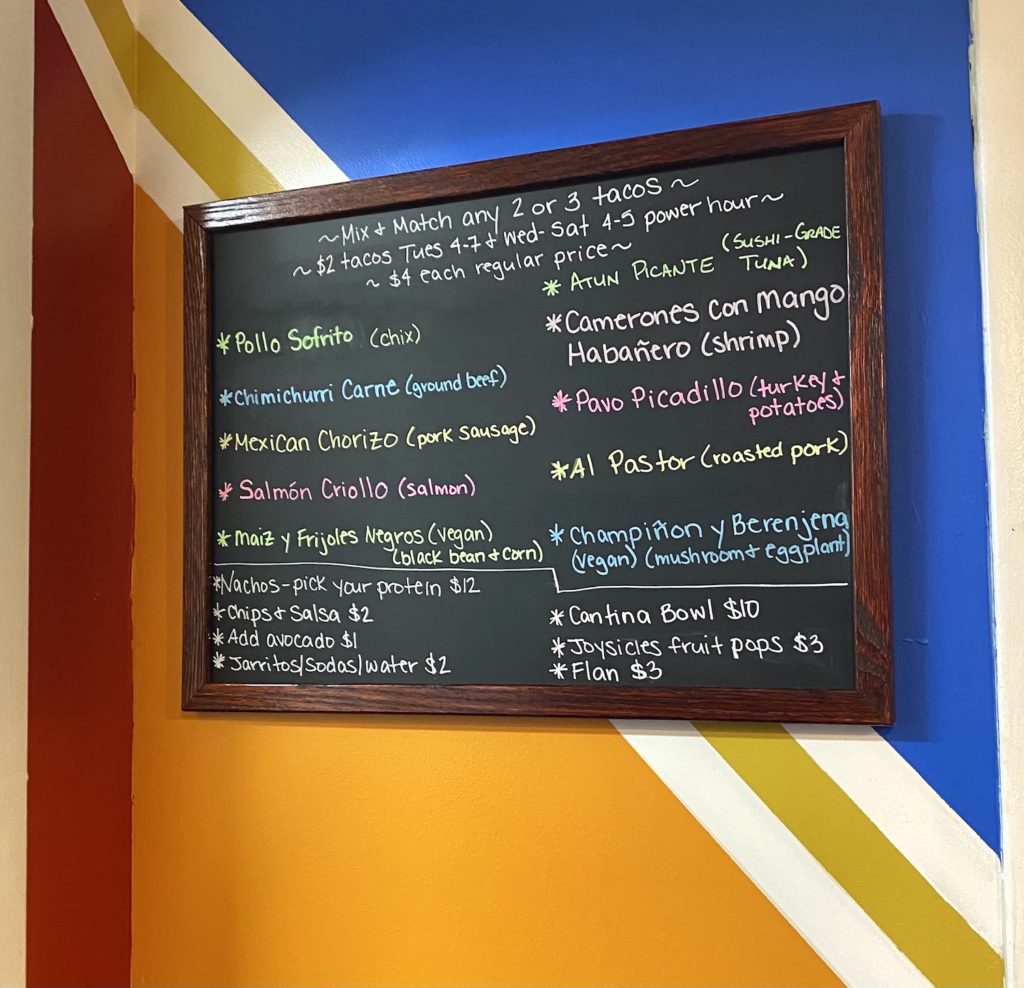 ~Mix & Match any 2 or 3 tacos~
~$2 tacos Tues 4-7 & Wed-Sat 4-5 power hour~
~$4 each regular price~
*Pollo Sofrito (chix)
*Chimichurri Carne (ground beef)
*Mexican Chorizo (pork sausage)
*Salmón Criollo (salmon)
*maiz y Frijoles Negros (vegan)
(black bean & corn)
*Atun Picante (Sushi-Grade
Tuna)
*Camerones con Mango
Habañero (shrimp)
*Pavo Picadillo (turkey &
potatoes)
*Al Pastor (roasted pork)
*Champiñon y Berenjena
(vegan) (mushroom & eggplant)
*Nachos-pick your protein $12
*Chips & Salsa $2
*Add avocado $1
*Jarritos/Sodas/water $2
*Cantina Bowl $10
*Joysicles fruit pops $3
*Flan $3